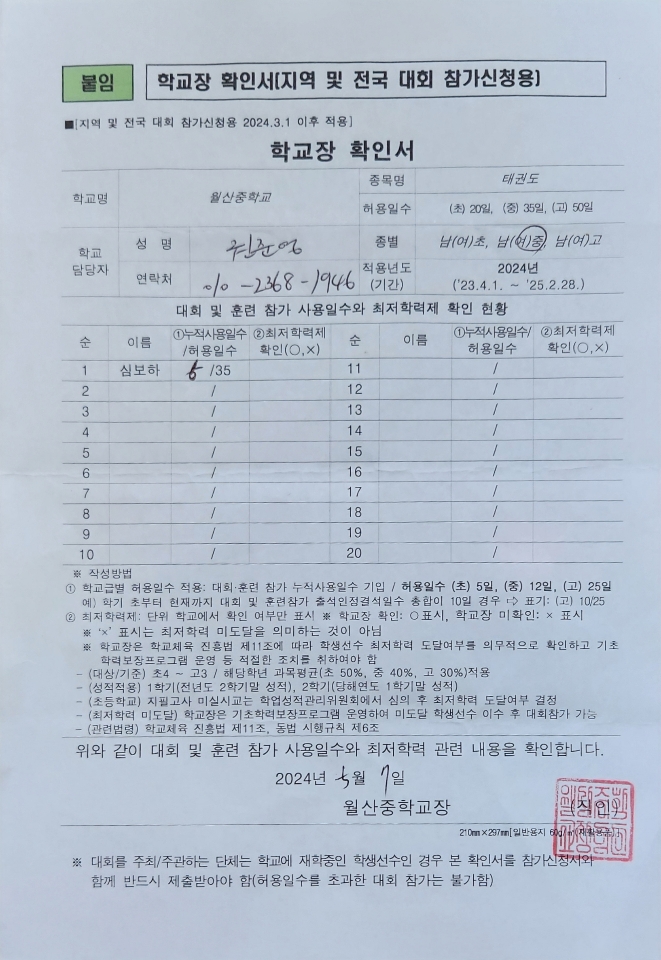 붙임
학교장 확인서(지역 및 전국 대회 참가신청용)
■[지역 및 전국 대회 참가신청용 2024.3.1 이후 적용]
학교장 확인서
학교명 월산중학교 종목명 태권도
허용일수 (초) 20일, (중) 35일, (고) 50일
학교 담당자 성 명 종별 남(여)초, 남(여)중, 남(여)고
연락처 010-2368-1946 적용년도 (기간) 2024년 ('23.4.1. ~ '25.2.28.)
대회 및 훈련 참가 사용일수와 최저학력제 확인 현황
순 이름 ①누적사용일수/허용일수 ②최저학력제 확인(○,×) 순 이름 ①누적사용일수/허용일수 ②최저학력제 확인(○,×)
1 심보하 5 /35 11 /
2 / 12 /
3 / 13 /
4 / 14 /
5 / 15 /
6 / 16 /
7 / 17 /
8 / 18 /
9 / 19 /
10 / 20 /
※ 작성방법
① 학교급별 허용일수 적용: 대회·훈련 참가 누적사용일수 기입 / 허용일수 (초) 5일, (중) 12일, (고) 25일
예) 학기 초부터 현재까지 대회 및 훈련참가 출석인정결석일수 총합이 10일 경우 ⇨ 표기: (고) 10/25
② 최저학력제: 단위 학교에서 확인 여부만 표시 ※ 학교장 확인: ○표시, 학교장 미확인: × 표시
※ '×' 표시는 최저학력 미도달을 의미하는 것이 아님
※ 학교장은 학교체육 진흥법 제11조에 따라 학생선수 최저학력 도달여부를 의무적으로 확인하고 기초
학력보장프로그램 운영 등 적절한 조치를 취하여야 함
- (대상/기준) 초4 ~ 고3 / 해당학년 과목평균(초 50%, 중 40%, 고 30%)적용
- (성적적용) 1학기(전년도 2학기말 성적), 2학기(당해연도 1학기말 성적)
- (초등학교) 지필고사 미실시교는 학업성적관리위원회에서 심의 후 최저학력 도달여부 결정
- (최저학력 미도달) 학교장은 기초학력보장프로그램 운영하여 미도달 학생선수 이수 후 대회참가 가능
- (관련법령) 학교체육 진흥법 제11조, 동법 시행규칙 제6조
위와 같이 대회 및 훈련 참가 사용일수와 최저학력 관련 내용을 확인합니다.
2024년 5월 7일
월산중학교장 (직인)
210㎜×297㎜[일반용지 60g/㎡(재활용품)]
※ 대회를 주최/주관하는 단체는 학교에 재학중인 학생선수인 경우 본 확인서를 참가신청서와
함께 반드시 제출받아야 함(허용일수를 초과한 대회 참가는 불가함)